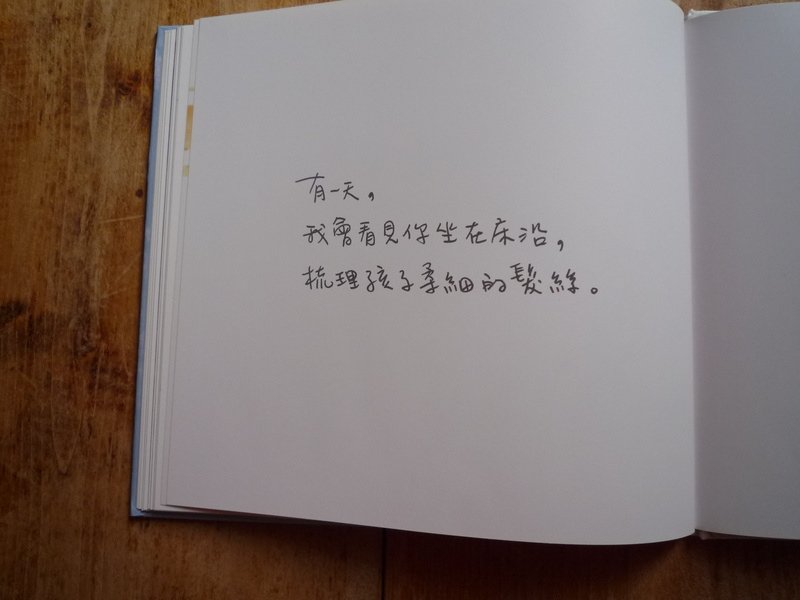 有一天，
我會看見你坐在床沿，
梳理孩子柔細的髮絲。